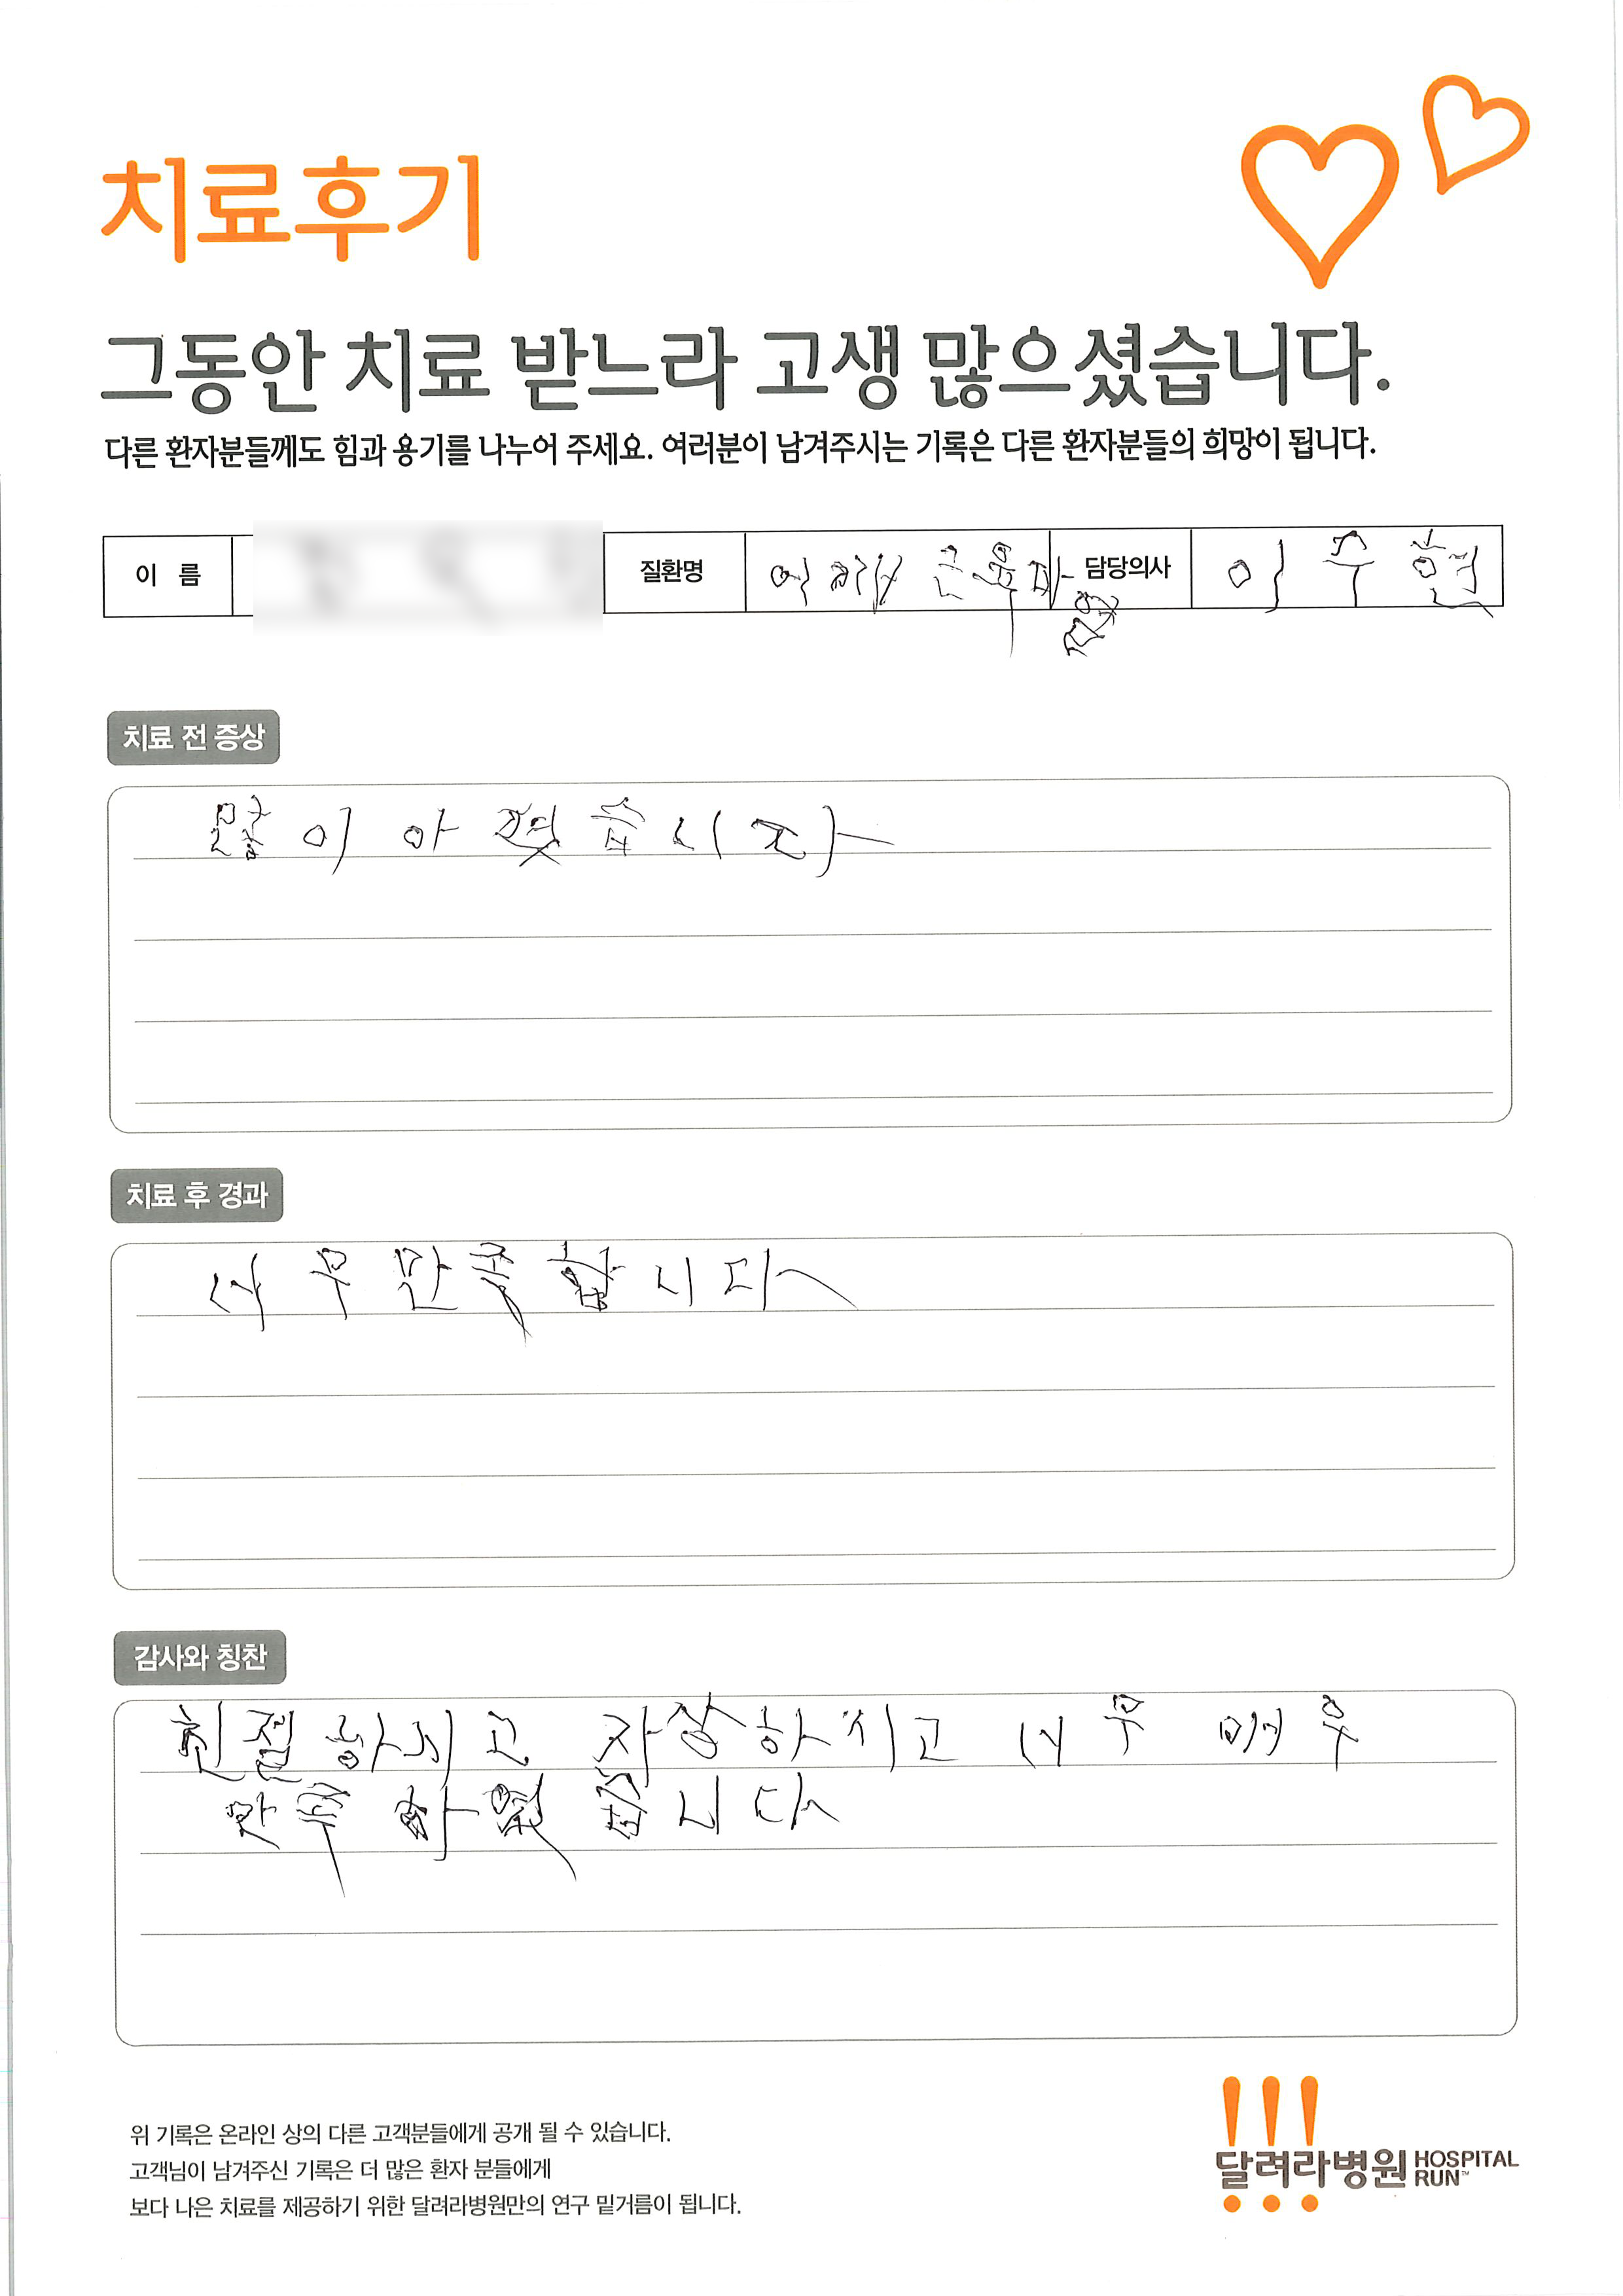 치료후기
그동안 치료 받느라 고생 많으셨습니다.
다른 환자분들께도 힘과 용기를 나누어 주세요. 여러분이 남겨주시는 기록은 다른 환자분들의 희망이 됩니다.
이 름 질환명 어깨 근육파열 담당의사 이 주 현
치료 전 증상
많이 아팠습니다
치료 후 경과
너무 만족합니다
감사와 칭찬
친절하시고 자상하시고 너무 매우
만족하였습니다
위 기록은 온라인 상의 다른 고객분들에게 공개 될 수 있습니다.
고객님이 남겨주신 기록은 더 많은 환자 분들에게
보다 나은 치료를 제공하기 위한 달려라병원만의 연구 밑거름이 됩니다.
!!! 달려라병원 HOSPITAL RUN™